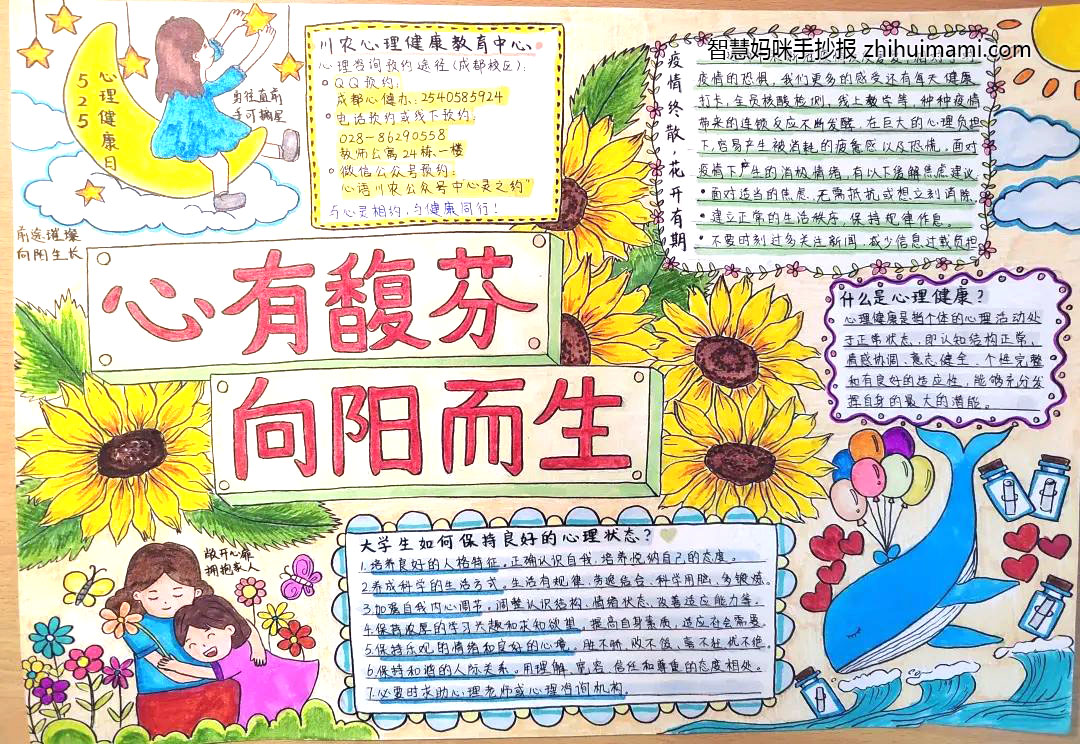 智慧妈咪手抄报 zhihuimami.com
525
心理健康日
身往直前
手可摘星
前途璀璨
向阳生长
川农心理健康教育中心
心理咨询预约途径(成都校区):
·QQ预约:
成都心健办:2540585924
·电话预约或线下预约:
028-86290558
教师公寓24栋一楼
·微信公众号预约:
心语川农公众号中"心灵之约"
与心灵相约,与健康同行!
疫情终散,花开有期
疫情的恐惧,我们更多的感受还有每天健康
打卡,全员核酸检测,线上教学等,种种疫情
带来的连锁反应不断发酵,在巨大的心理负担
下,容易产生被消耗的疲惫感以及恐慌,面对
疫情下产生的消极情绪,有以下缓解焦虑建议
·面对适当的焦虑,无需抵抗或想立刻消除.
·建立正常的生活秩序,保持规律作息.
·不要时刻过多关注新闻,减少信息过载负担
心有馥芬
向阳而生
什么是心理健康?
心理健康是指个体的心理活动处
于正常状态,即认知结构正常,
情感协调、意志健全、个性完整
和有良好的适应性,能够充分发
挥自身的最大的潜能。
敞开心扉
拥抱家人
大学生如何保持良好的心理状态?
1.培养良好的人格特征,正确认识自我,培养悦纳自己的态度。
2.养成科学的生活方式,生活有规律,劳逸结合,科学用脑,多锻炼。
3.加强自我内心调节,调整认识结构、情绪状态、改善适应能力等。
4.保持浓厚的学习兴趣和求知欲望,提高自身素质,适应社会需要。
5.保持乐观的情绪和良好的心境。胜不骄,败不馁,喜不狂,忧不绝。
6.保持和谐的人际关系。用理解、宽容、信任和尊重的态度相处。
7.必要时求助心理老师或心理咨询机构。